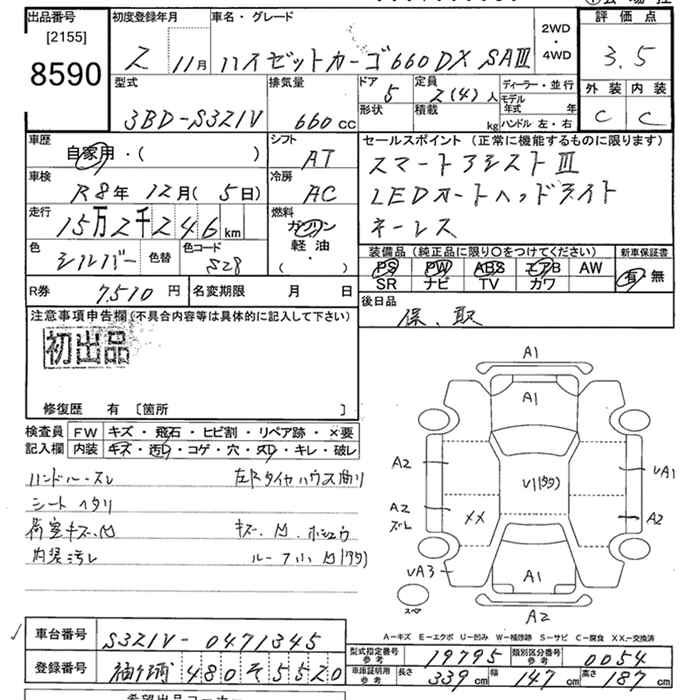 出品番号 初度登録年月 車名・グレード 2WD・4WD 評価点
[2155]
8590
Z 11月 ハイゼットカーゴ660DX SAⅢ 3.5
型式 排気量 ドア 定員 ディーラー・並行 外装 内装
3BD-S321V 660cc 5 2(4)人 モデル年式 年 C C
形状 積載 kg ハンドル 左・右
車歴 シフト セールスポイント(正常に機能するものに限ります)
自家用・( ) AT スマートアシストⅢ
車検 冷房 LEDオートヘッドライト
R8年12月(5日) AC キーレス
走行 燃料
15万2千246km ガソリン
軽油
( ・ )
色 色替 色コード 装備品(純正品に限り○をつけてください) 新車保証書
シルバー S28 PS PW ABS エアB AW 有・無
SR ナビ TV カワ
R券 7,510円 名変期限 月 日 後日品
保、取
注意事項申告欄(不具合内容等は具体的に記入して下さい)
初出品
修復歴 有 〔箇所 〕
検査員 FW キズ・飛石・ヒビ割・リペア跡・×要
記入欄 内装 キズ・汚れ・コゲ・穴・スレ・キレ・破レ
ハンドル・スレ 左Rタイヤハウス曲り
シート ヘタリ
荷室キズ、凹 キズ、凹、ホシュウ
内装汚レ ルーフ小凹(多)
A1
A1
A2 V1(多) UA1
A2 スレ XX A2
UA3 A1
スペア A2
A-キズ E-エクボ U-凹み W-補修跡 S-サビ C-腐食 XX-交換済
車台番号 S321V-0471345
型式指定番号 参考 19795 類別区分番号 参考 0054
登録番号 480 そ 5520
車庫証明用 参考 長さ 339cm 幅 147cm 高さ 187cm